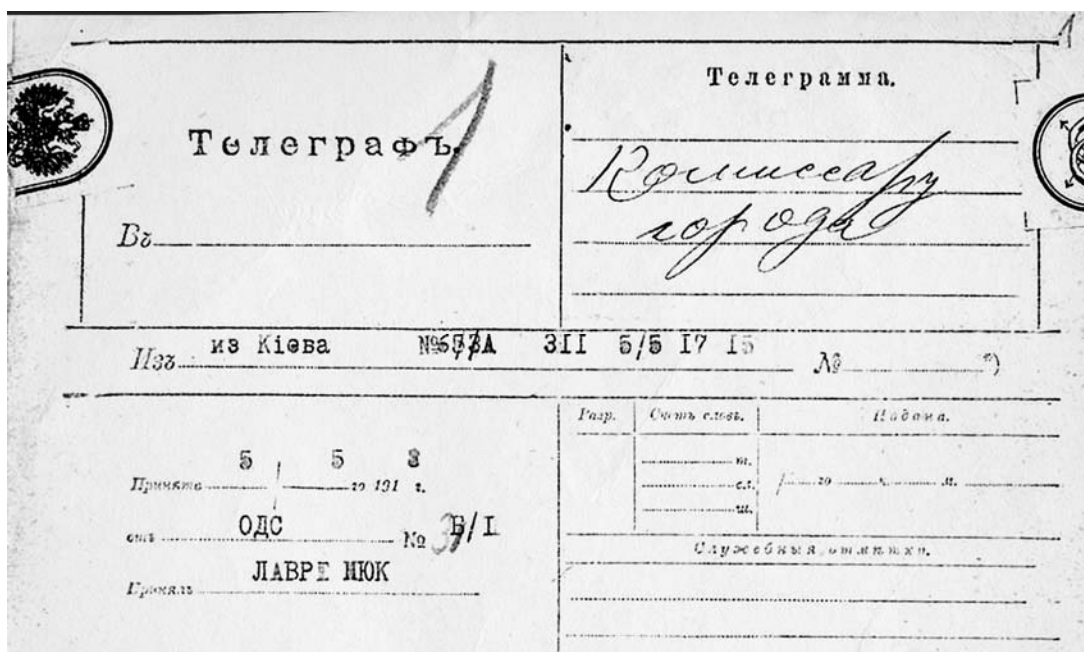 1
Телеграфъ.
1
Въ
Телеграмма.
Комиссару
города
Изъ из Кіева 3II 5/5 I7 I5 № *)
Принята 5 / 5 го 191 8 г.
отъ ОДС № Б/I
Принялъ ЛАВРЕ НЮК
Разр. Счетъ словъ. Подана.
т.
сл. / го ч. м.
ш.
Служебныя отмѣтки.